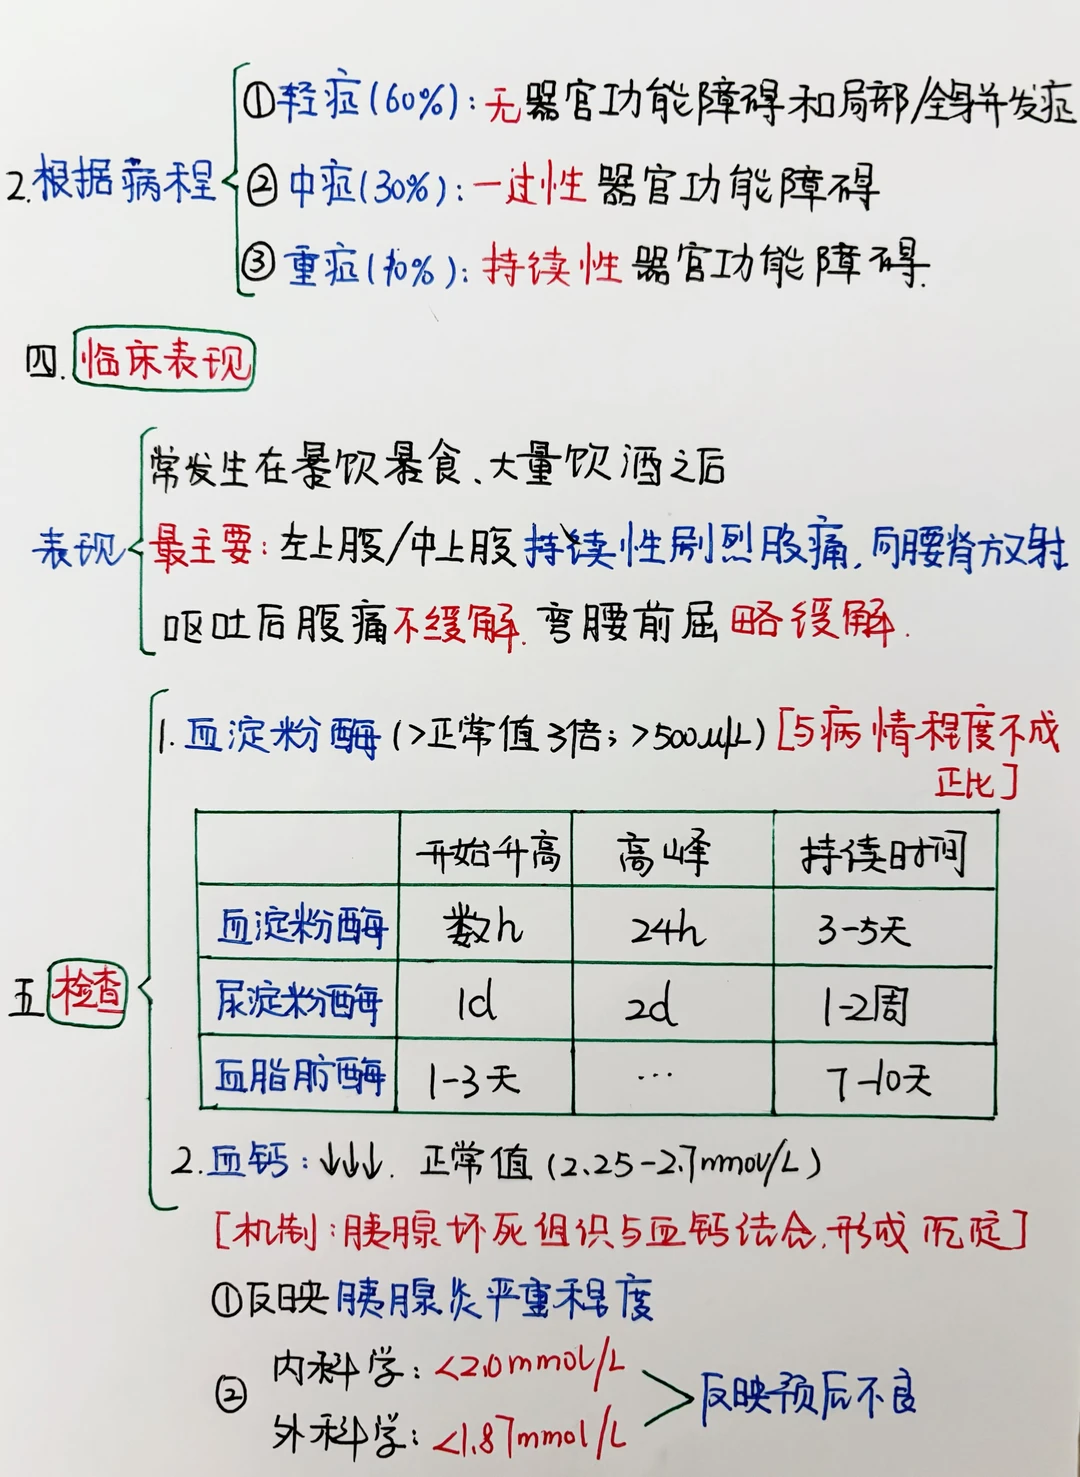 2.根据病程
①轻症(60%):无器官功能障碍和局部/全身并发症
②中症(30%):一过性器官功能障碍
③重症(10%):持续性器官功能障碍.
四.临床表现
表现
常发生在暴饮暴食、大量饮酒之后
最主要:左上腹/中上腹持续性剧烈腹痛,向腰背放射
呕吐后腹痛不缓解.弯腰前屈略缓解.
五检查
1.血淀粉酶(>正常值3倍;>500u/L)[与病情程度不成
正比]
开始升高 高峰 持续时间
血淀粉酶 数h 24h 3-5天
尿淀粉酶 1d 2d 1-2周
血脂肪酶 1-3天 … 7-10天
2.血钙:↓↓↓.正常值(2.25-2.7mmol/L)
[机制:胰腺坏死组织与血钙结合,形成沉淀]
①反映胰腺炎严重程度
②
内科学:<2.0mmol/L
外科学:<1.87mmol/L
>反映预后不良